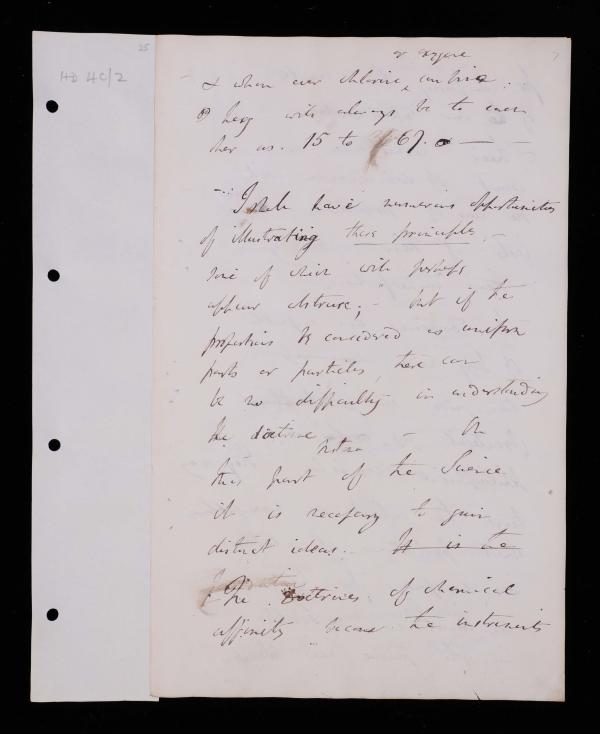 25
HD 4C/2
7
or oxygene
& when ever chlorine combine
they will always be to each
other as. 15 to 67. —
I shall have numerous opportunities
of illustrating these principles, —
some of which will perhaps
appear abstruse; — but if the
proportions be considered as uniform
parts or particles, there can
be no difficulty in understanding
the doctrine — On
this part of the Science
it is necessary to gain
distinct ideas. — It is the
The doctrines of chemical
affinity become the instruments